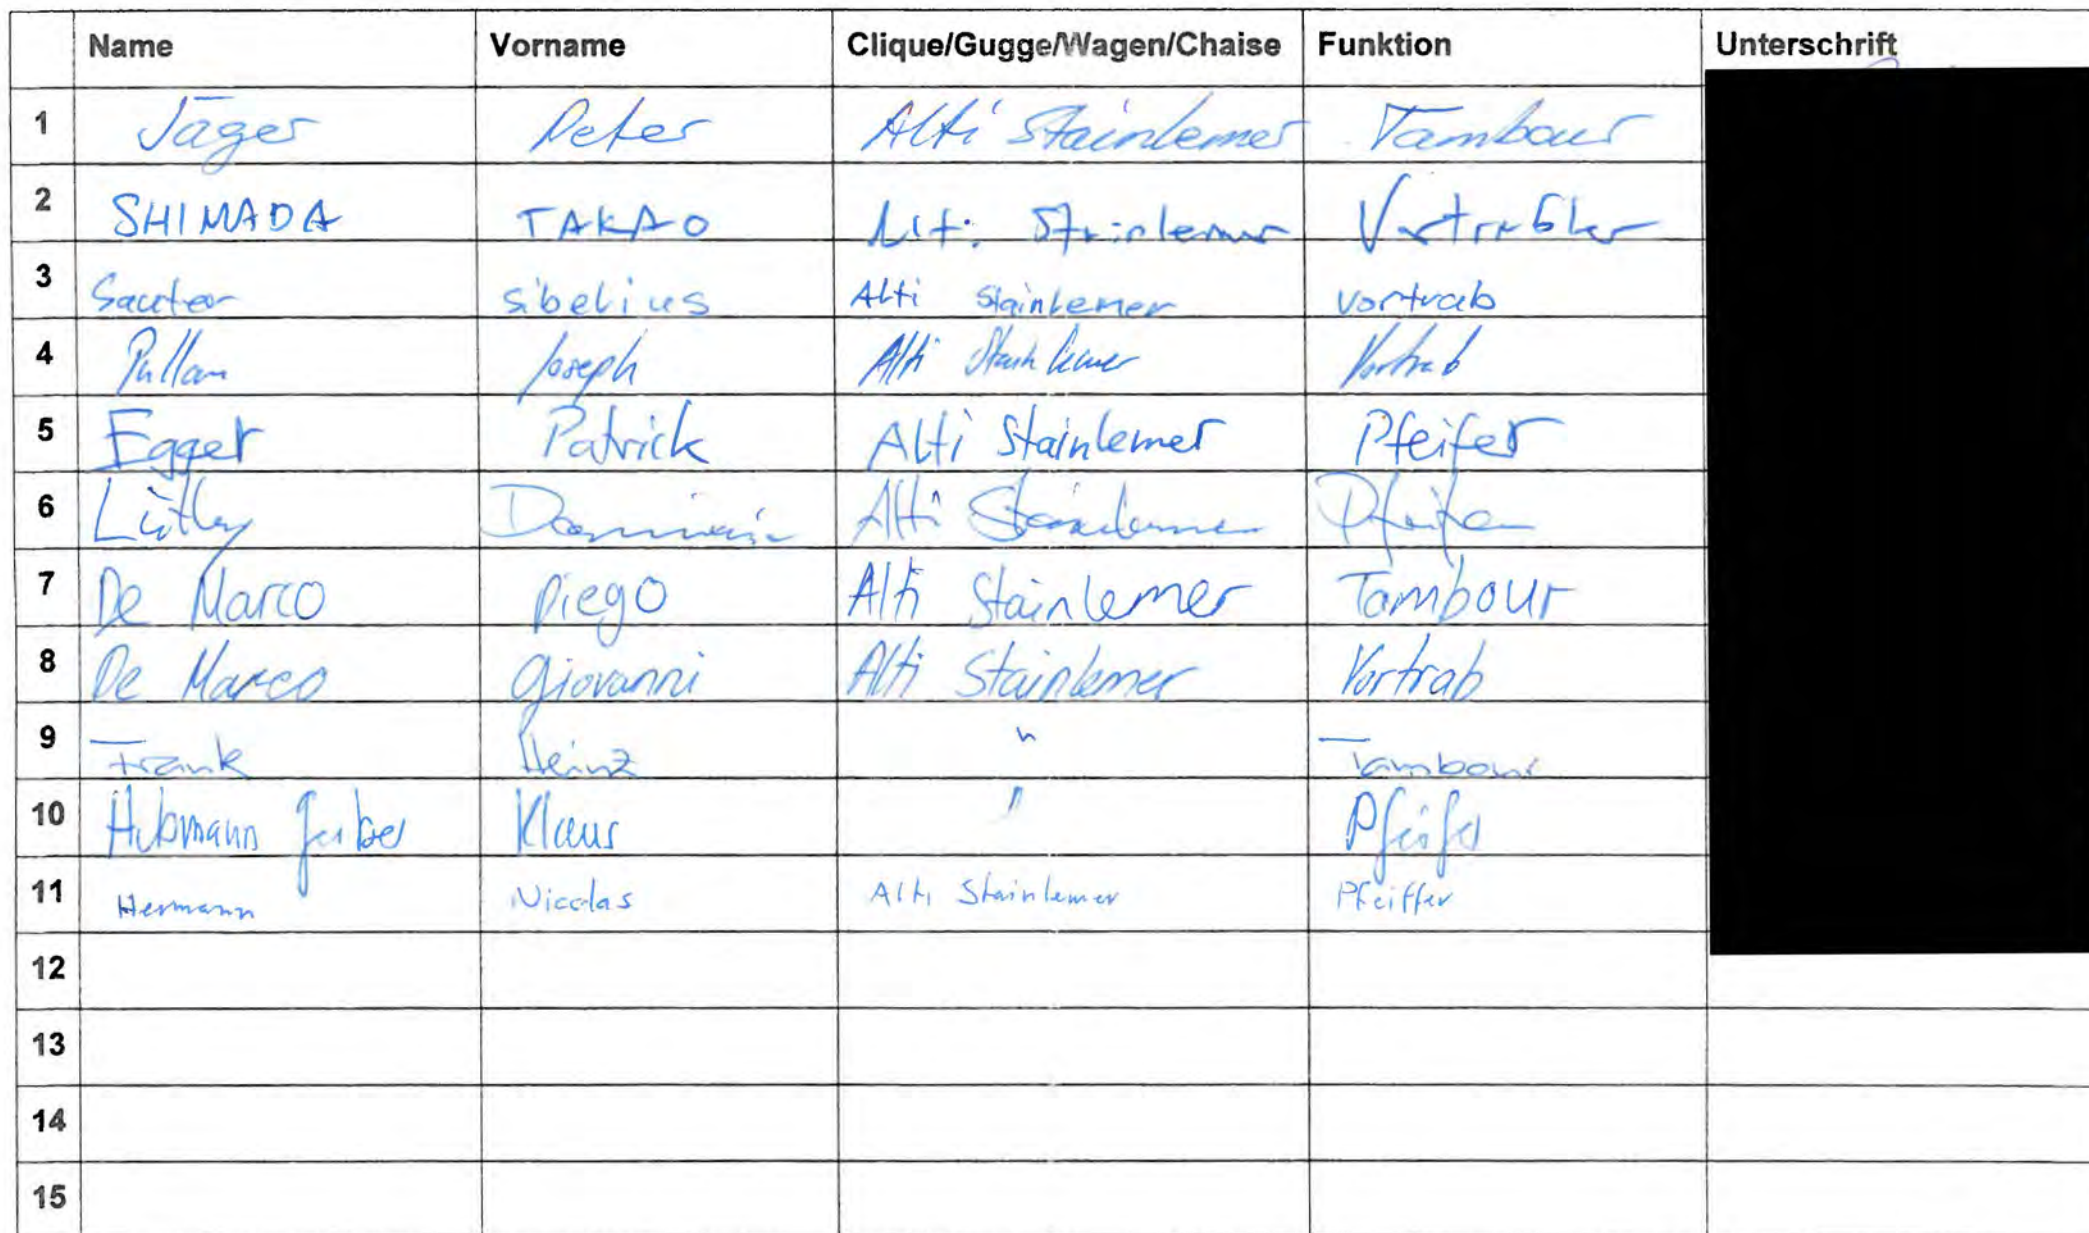 Name Vorname Clique/Gugge/Wagen/Chaise Funktion Unterschrift
1 Jäger Peter Alti Stainlemer Tambour
2 SHIMADA TAKAO Alti Stainlemer Vorträbler
3 Sauter Sibelius Alti Stainlemer Vortrab
4 Pullan Joseph Alti Stainlemer Vortrab
5 Egger Patrick Alti Stainlemer Pfeifer
6 Lüthy Alti Stainlemer Pfeifer
7 De Marco Diego Alti Stainlemer Tambour
8 De Marco Giovanni Alti Stainlemer Vortrab
9 Frank Heinz " Tambour
10 Hubmann Gerber Klaus " Pfeifer
11 Hermann Nicolas Alti Stainlemer Pfeiffer
12
13
14
15